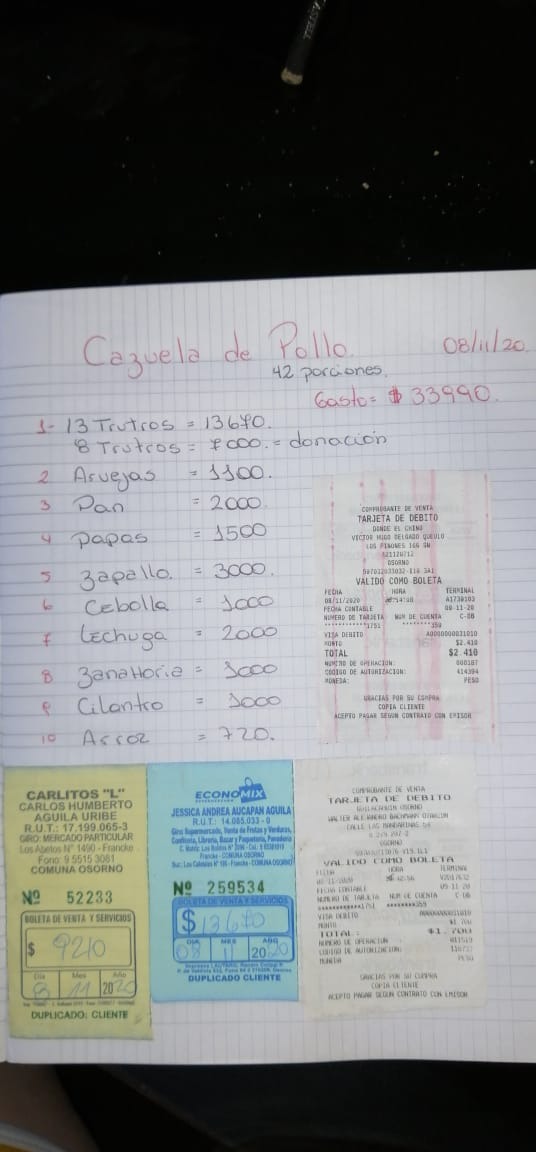 Cazuela de Pollo. 08/11/20.
42 porciones.
Gasto = $ 33990.
1- 13 Trutros = 13670.
8 Trutros = 7000. = donación
2 Arvejas = 1100.
3 Pan = 2000
4 papas = 1500
5 zapallo. = 3000.
6 Cebolla = 1000
7 Lechuga = 2000
8 Zanahoria = 1000
9 Cilantro = 1000
10 Arroz = 720.
COMPROBANTE DE VENTA
TARJETA DE DEBITO
DONDE EL CHINO
VICTOR HUGO DELGADO
OSORNO
VALIDO COMO BOLETA
FECHA HORA TERMINAL
08/11/2020 A1730103
FECHA CONTABLE 09-11-20
NUMERO DE TARJETA NUM DE CUENTA C-08
VISA DEBITO A0000000031010
MONTO $2.410
TOTAL $2.410
NUMERO DE OPERACION:
CODIGO DE AUTORIZACION: 414394
MONEDA: PESO
GRACIAS POR SU COMPRA
COPIA CLIENTE
ACEPTO PAGAR SEGUN CONTRATO CON EMISOR
CARLITOS "L"
CARLOS HUMBERTO
AGUILA URIBE
R.U.T.: 17.199.065-3
GIRO: MERCADO PARTICULAR
Los Abetos N° 1490 - Francke
Fono: 9 5515 3081
COMUNA OSORNO
Nº 52233
BOLETA DE VENTA Y SERVICIOS
$ 9210
Día Mes Año
8 11 2020
DUPLICADO: CLIENTE
ECONOMIX
JESSICA ANDREA AUCAPAN AGUILA
R.U.T.: 14.085.033-0
Giro: Supermercado, Venta de Frutas y Verduras,
Francke - COMUNA OSORNO
Nº 259534
BOLETA DE VENTA Y SERVICIOS
$ 13670
DIA MES AÑO
08 11 2020
DUPLICADO CLIENTE
COMPROBANTE DE VENTA
TARJETA DE DEBITO
OSORNO
VALIDO COMO BOLETA
FECHA HORA TERMINAL
FECHA CONTABLE 09-11-20
NUMERO DE TARJETA NUM DE CUENTA
VISA DEBITO
MONTO $1.700
TOTAL: $1.700
NUMERO DE OPERACION
CODIGO DE AUTORIZACION:
MONEDA PESO
GRACIAS POR SU COMPRA
COPIA CLIENTE
ACEPTO PAGAR SEGUN CONTRATO CON EMISOR